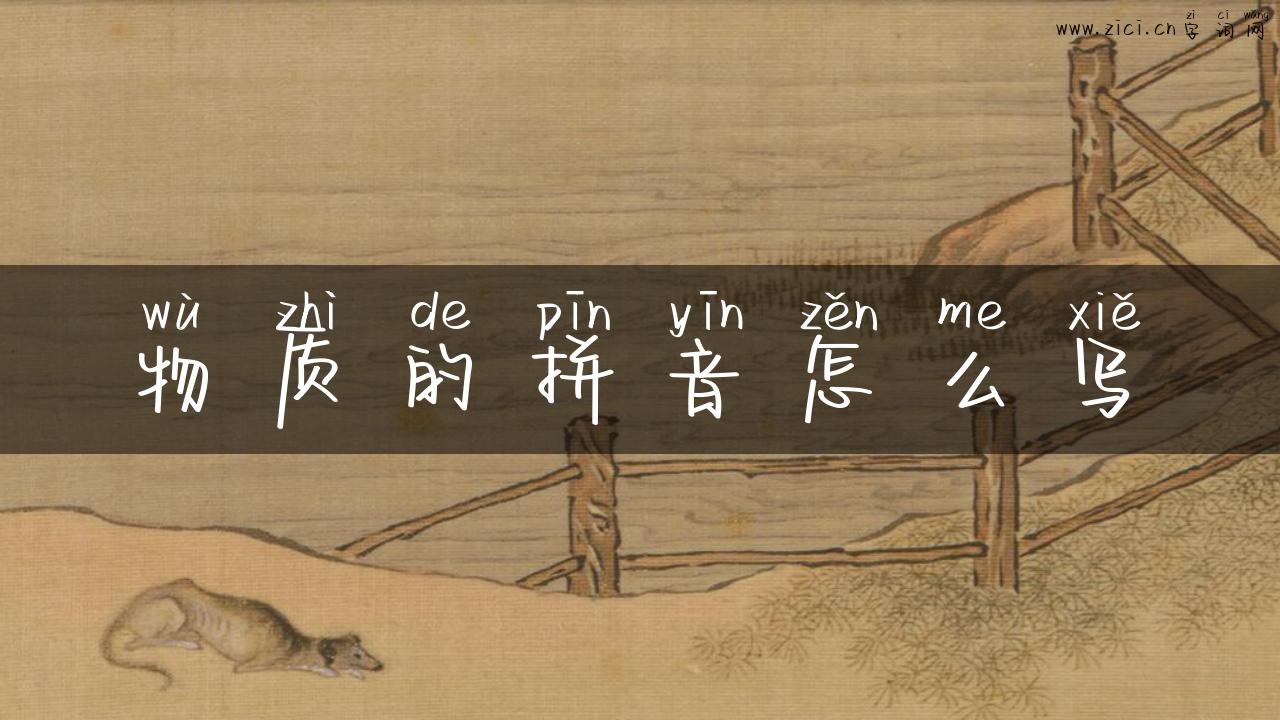 zì cí wǎng
www.zici.cn 字词网
wù zhì de pīn yīn zěn me xiě
物质的拼音怎么写